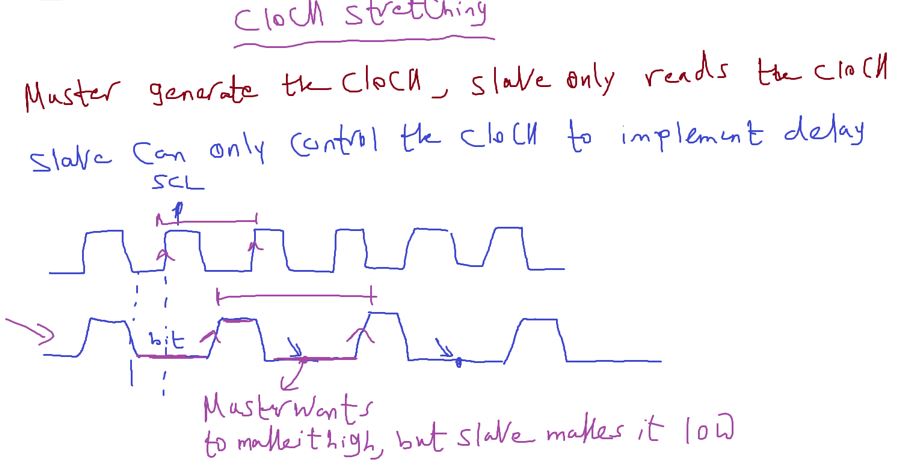 Clock stretching
Master generate the clock, slave only reads the clock
slave can only control the clock to implement delay
SCL
bit
Master wants
to make it high, but slave makes it low